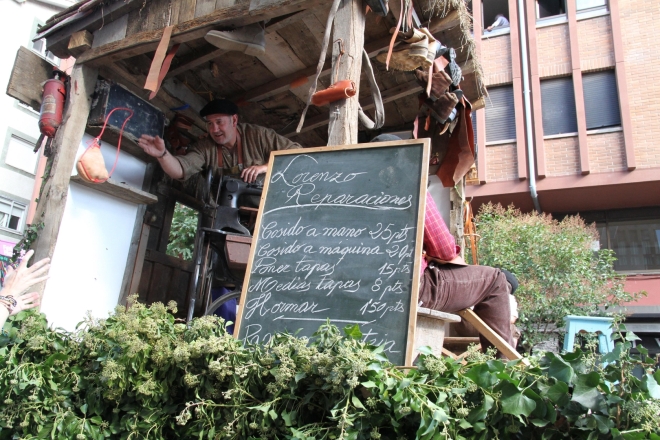 Lorenzo
Reparaciones
Cosido a mano 25 pts
Cosido a maquina 20 pts
Poner tapas 15 pts
Medias tapas 8 pts
Hormar 150 pts